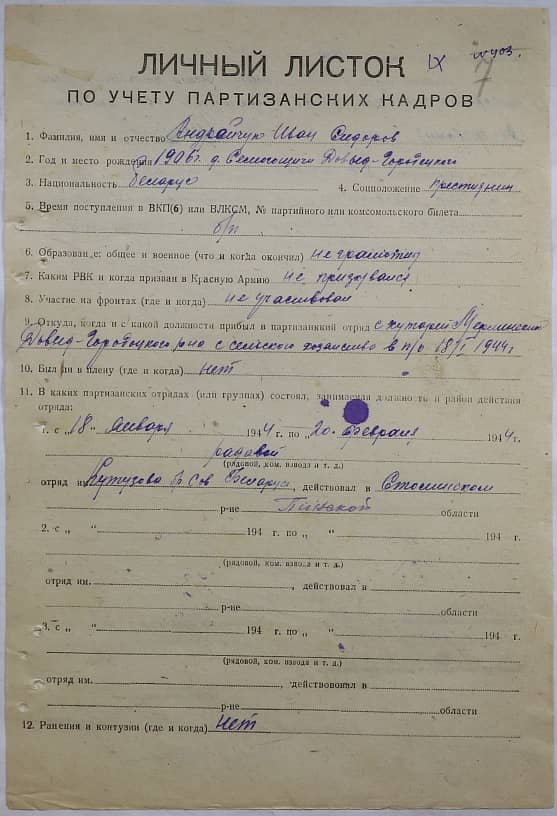 IX № 403.
7
ЛИЧНЫЙ ЛИСТОК
ПО УЧЕТУ ПАРТИЗАНСКИХ КАДРОВ
1. Фамилия, имя и отчество Андрайчук Иван Сидоров
2. Год и место рождения 1906 г. д. Семигощичи Довыд-Городоцкий
3. Национальность беларус 4. Соцположение крестьянин
5. Время поступления в ВКП(б) или ВЛКСМ, № партийного или комсомольского билета
б/п
6. Образован е: общее и военное (что и когда окончил) не грамотный
7. Каким РВК и когда призван в Красную Армию не призывался
8. Участие на фронтах (где и когда) не участвовал
9. Откуда, когда и с какой должности прибыл в партизанкий отряд с хуторей
Довыд-Городоцкого р-на с сельского хозяйства в п/о 18/I 1944 г
10. Был ли в плену (где и когда) нет
11. В каких партизанских отрядах (или группах) состоял, занимаемая должность и район действия
отряда:
1. с „18" января 1944 г. по „20" февраля 1944 г.
радавой
(рядовой, ком. взвода и т. д.)
отряд им. Кутузова бр Сов Беларусь, действовал в Столинском
р-не Пинской области
2. с „ " 194 г. по „ " 194 г.
(рядовой, ком. взвода и т. д.)
отряд им. , действовал в
р-не области
3. с „ " 194 г. по „ " 194 г.
(рядовой, ком. взвода и т. д.)
отряд им. , действововал в
р-не области
12. Ранения и контузии (где и когда) нет